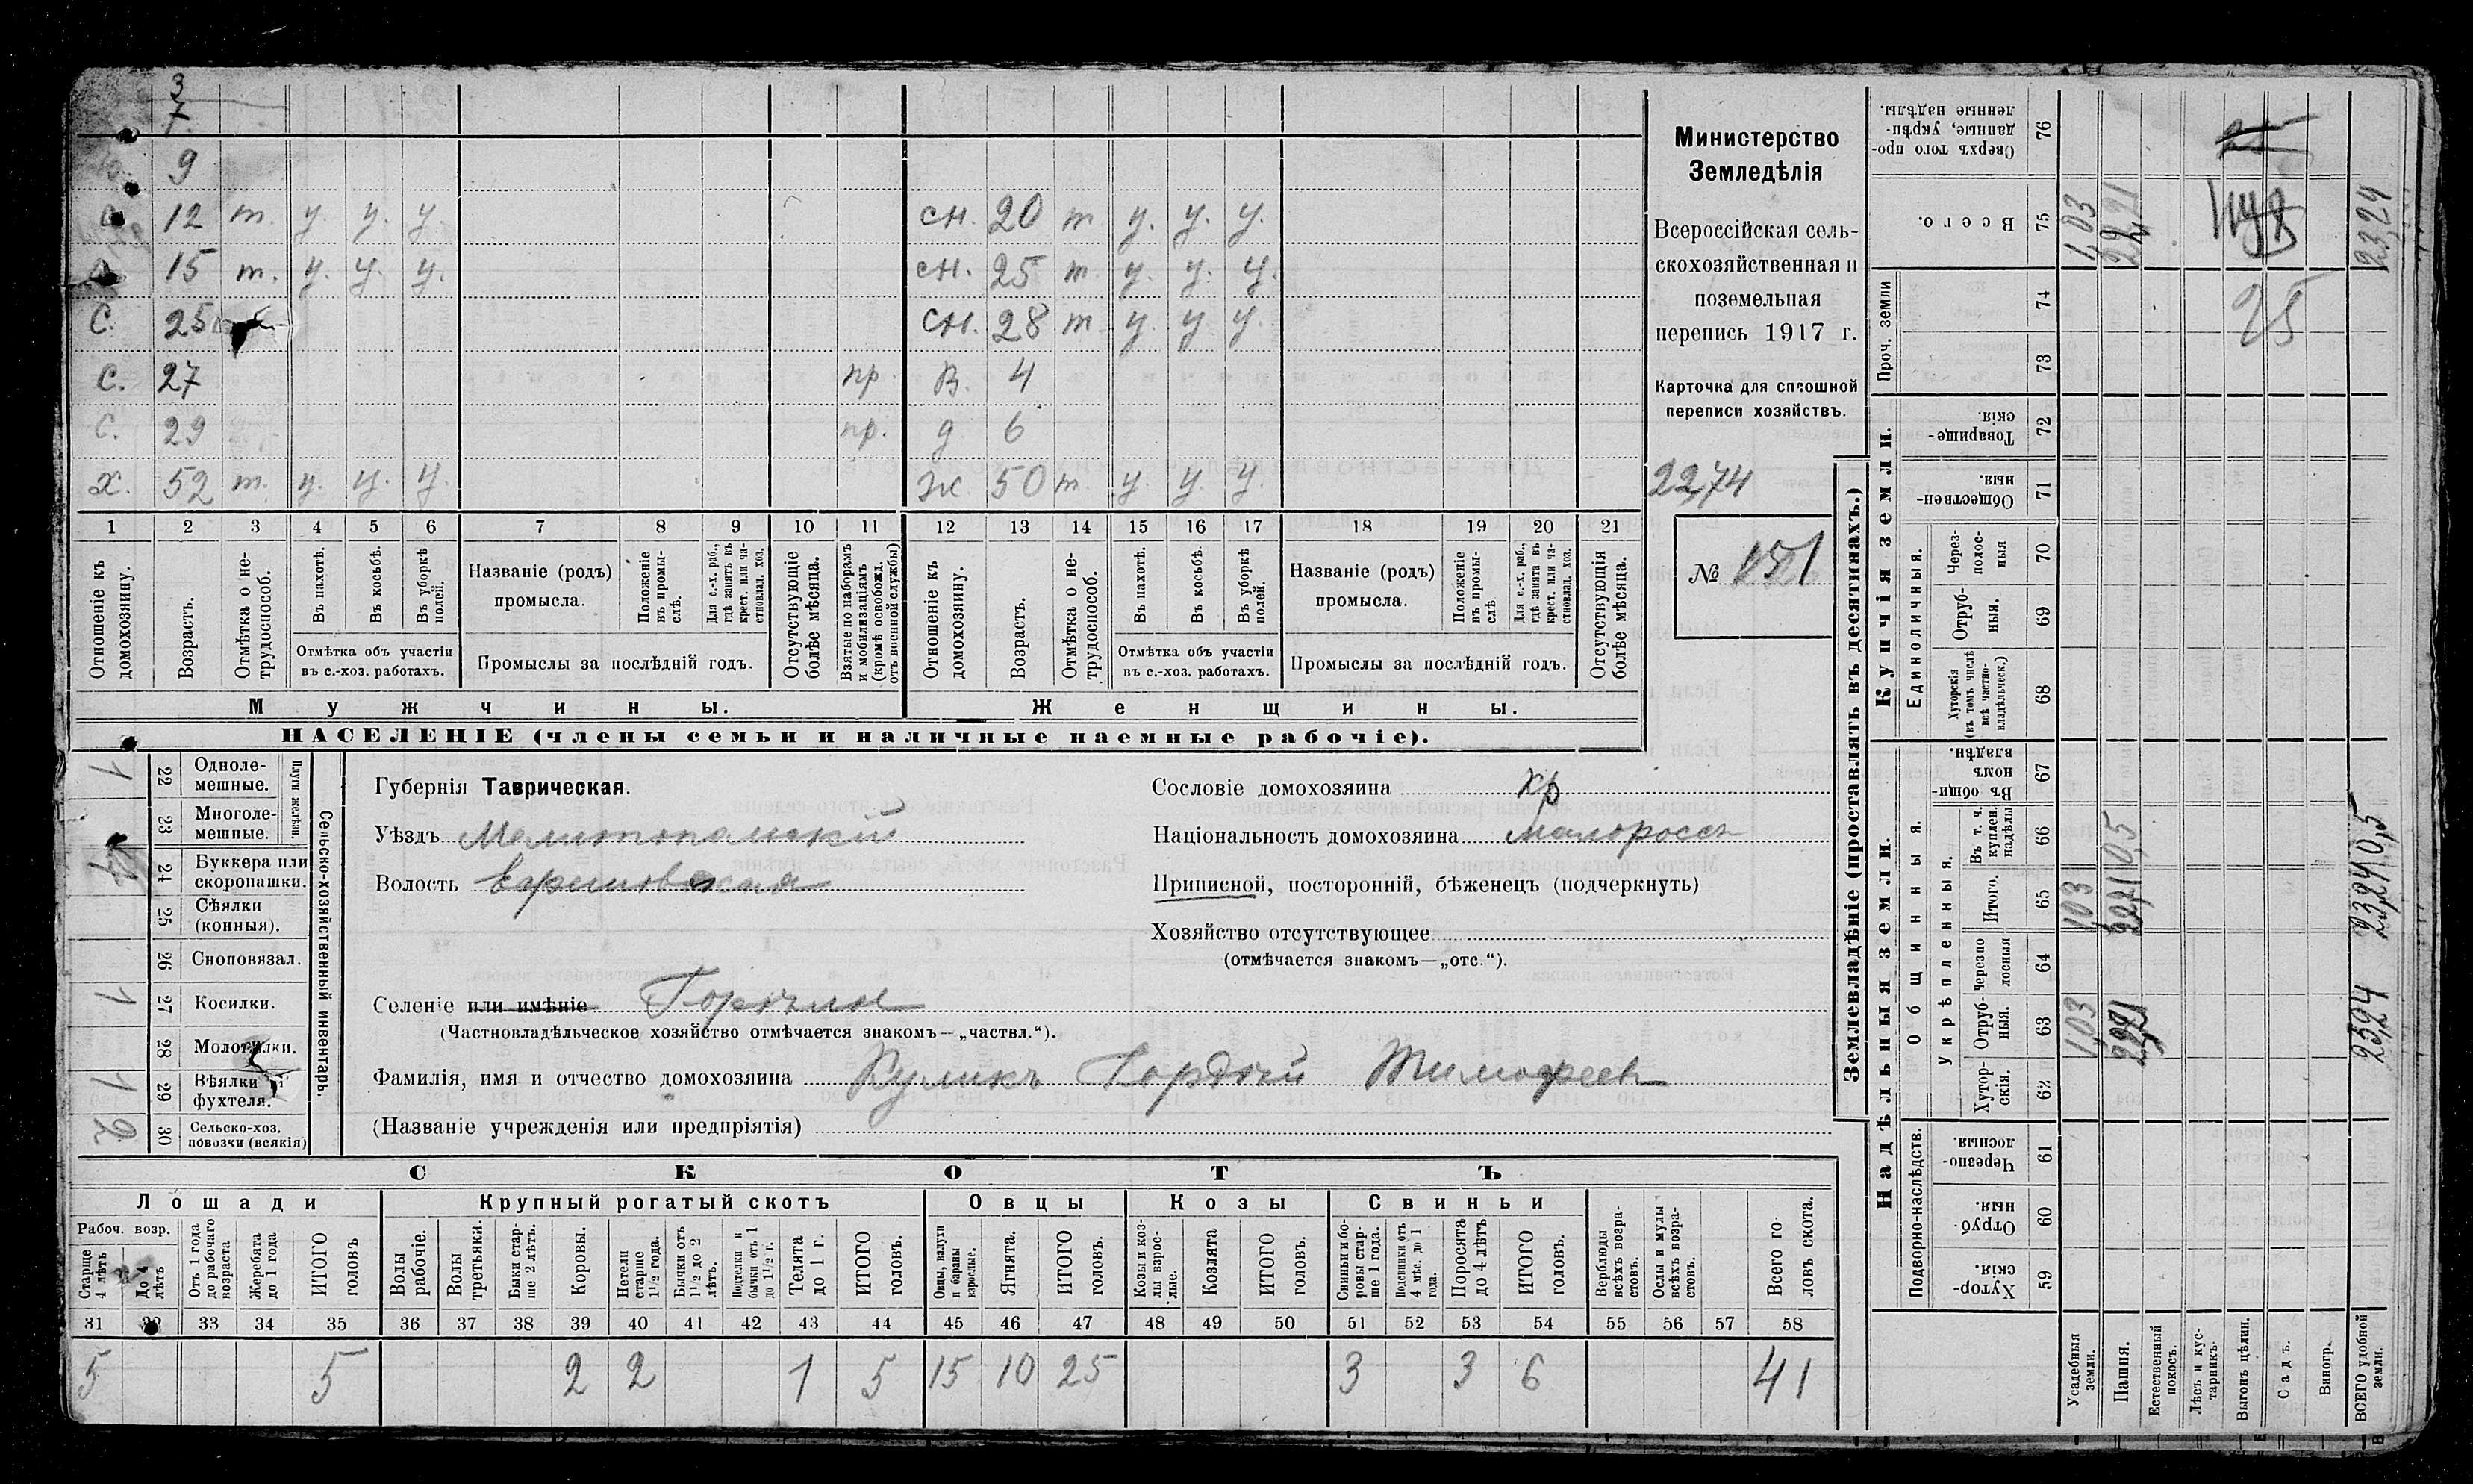 3
9
12 т. у. у. у. сн. 20 т у. у. у.
15 т. у. у. у. сн. 25 т. у. у. у.
С. 25 сн. 28 т. у. у у.
С. 27 пр. В. 4
С. 29 пр. д 6
х. 52 т. у. у. у. ж. 50 т. у. у. у.
1 2 3 4 5 6 7 8 9 10 11 12 13 14 15 16 17 18 19 20 21
Отношеніе къ домохозяину.
Возрастъ.
Отмѣтка о не-
трудоспособ.
Въ пахотѣ.
Въ косьбѣ.
Въ уборкѣ полей.
Отмѣтка объ участіи
въ с.-хоз. работахъ.
Названіе (родъ)
промысла.
Положеніе въ промы-
слѣ.
Для с.-х. раб., гдѣ занятъ въ крест. или ча-
стновлад. хоз.
Промыслы за послѣдній годъ.
Отсутствующіе болѣе мѣсяца.
Взятые по наборамъ и мобилизаціямъ (кромѣ освобожд. отъ военной службы)
Отношеніе къ домохозяину.
Возрастъ.
Отмѣтка о не-
трудоспособ.
Въ пахотѣ.
Въ косьбѣ.
Въ уборкѣ полей.
Отмѣтка объ участіи
въ с.-хоз. работахъ.
Названіе (родъ)
промысла.
Положеніе въ промы-
слѣ
Для с.-х. раб., гдѣ занята въ крест. или ча-
стновлад. хоз.
Промыслы за послѣдній годъ.
Отсутствующія болѣе мѣсяца.
Мужчины. Женщины.
НАСЕЛЕНІЕ (члены семьи и наличные наемные рабочіе).
Министерство
Земледѣлія
Всероссійская сель-
скохозяйственная и
поземельная
перепись 1917 г.
Карточка для сплошной
переписи хозяйствъ.
22,74
№ 151
Сельско-хозяйственный инвентарь.
Плуги желѣзн.
1 22 Одноле-
мешные.
23 Многоле-
мешные.
24 Буккера или
скоропашки.
25 Сѣялки
(конныя).
26 Сноповязал.
1 27 Косилки.
28 Молотилки.
1 29 Вѣялки и
фухтеля.
2 30 Сельско-хоз.
повозки (всякія)
Губернія Таврическая.
Уѣздъ Мелитопольскій
Волость
Сословіе домохозяина хр
Національность домохозяина малороссъ
Приписной, посторонній, бѣженецъ (подчеркнуть)
Хозяйство отсутствующее
(отмѣчается знакомъ—„отс.“).
Селеніе или имѣніе
(Частновладѣльческое хозяйство отмѣчается знакомъ—„частвл.“).
Фамилія, имя и отчество домохозяина Куликъ Гордѣй Тимофеев
(Названіе учрежденія или предпріятія)
СКОТЪ
Лошади Крупный рогатый скотъ Овцы Козы Свиньи
Рабоч. возр.
Старше 4 лѣтъ
До 4 лѣтъ
Отъ 1 года до рабочаго возраста
Жеребята до 1 года
ИТОГО головъ
Волы рабочіе.
Волы третьяки.
Быки стар-
ше 2 лѣтъ.
Коровы.
Нетели старше 1½ года.
Бычки отъ 1½ до 2 лѣтъ.
Подтелки и бычки отъ 1 до 1½ г.
Телята до 1 г.
ИТОГО головъ.
Овцы, валухи и бараны взрослые.
Ягнята.
ИТОГО головъ.
Козы и коз-
лы взрос-
лые.
Козлята
ИТОГО головъ.
Свиньи и бо-
ровы стар-
ше 1 года.
Подсвинки отъ 4 мѣс. до 1 года.
Поросята до 4 лѣтъ
ИТОГО головъ.
Верблюды всѣхъ возра-
стовъ.
Ослы и мулы всѣхъ возра-
стовъ.
Всего го-
ловъ скота.
31 32 33 34 35 36 37 38 39 40 41 42 43 44 45 46 47 48 49 50 51 52 53 54 55 56 57 58
5 5 2 2 1 5 15 10 25 3 3 6 41
Землевладѣніе (проставлять въ десятинахъ.)
Надѣльныя земли. Купчія земли. Проч. земли
Подворно-наслѣдств.
Общинныя.
Укрѣпленныя.
Единоличныя.
Хутор-
скія. 59
Отруб-
ныя. 60
Черезпо-
лосныя. 61
Хутор-
скія. 62
Отруб-
ныя. 63
Черезпо
лосныя 64
Итого. 65
Въ т. ч. куплен. надѣлы 66
Въ общин-
номъ владѣн. 67
Хуторскія (въ томъ числѣ всѣ частно-
владѣльческ.) 68
Отруб-
ныя. 69
Через-
полос-
ныя 70
Обществен-
ныя. 71
Товарище-
скія. 72
73
74
Всего. 75
Сверхъ того про-
данные, укрѣп-
ленные надѣлы. 76
Усадебныя земли. 1,03 1,03 1,03
Пашня. 22,21 22,21 0,5
Естественный покосъ.
Лѣсъ и кус-
тарникъ.
Выгонъ цѣлин. 25
Садъ.
Виногр.
ВСЕГО удобной земли. 23,24 23,24 0,5 23,24